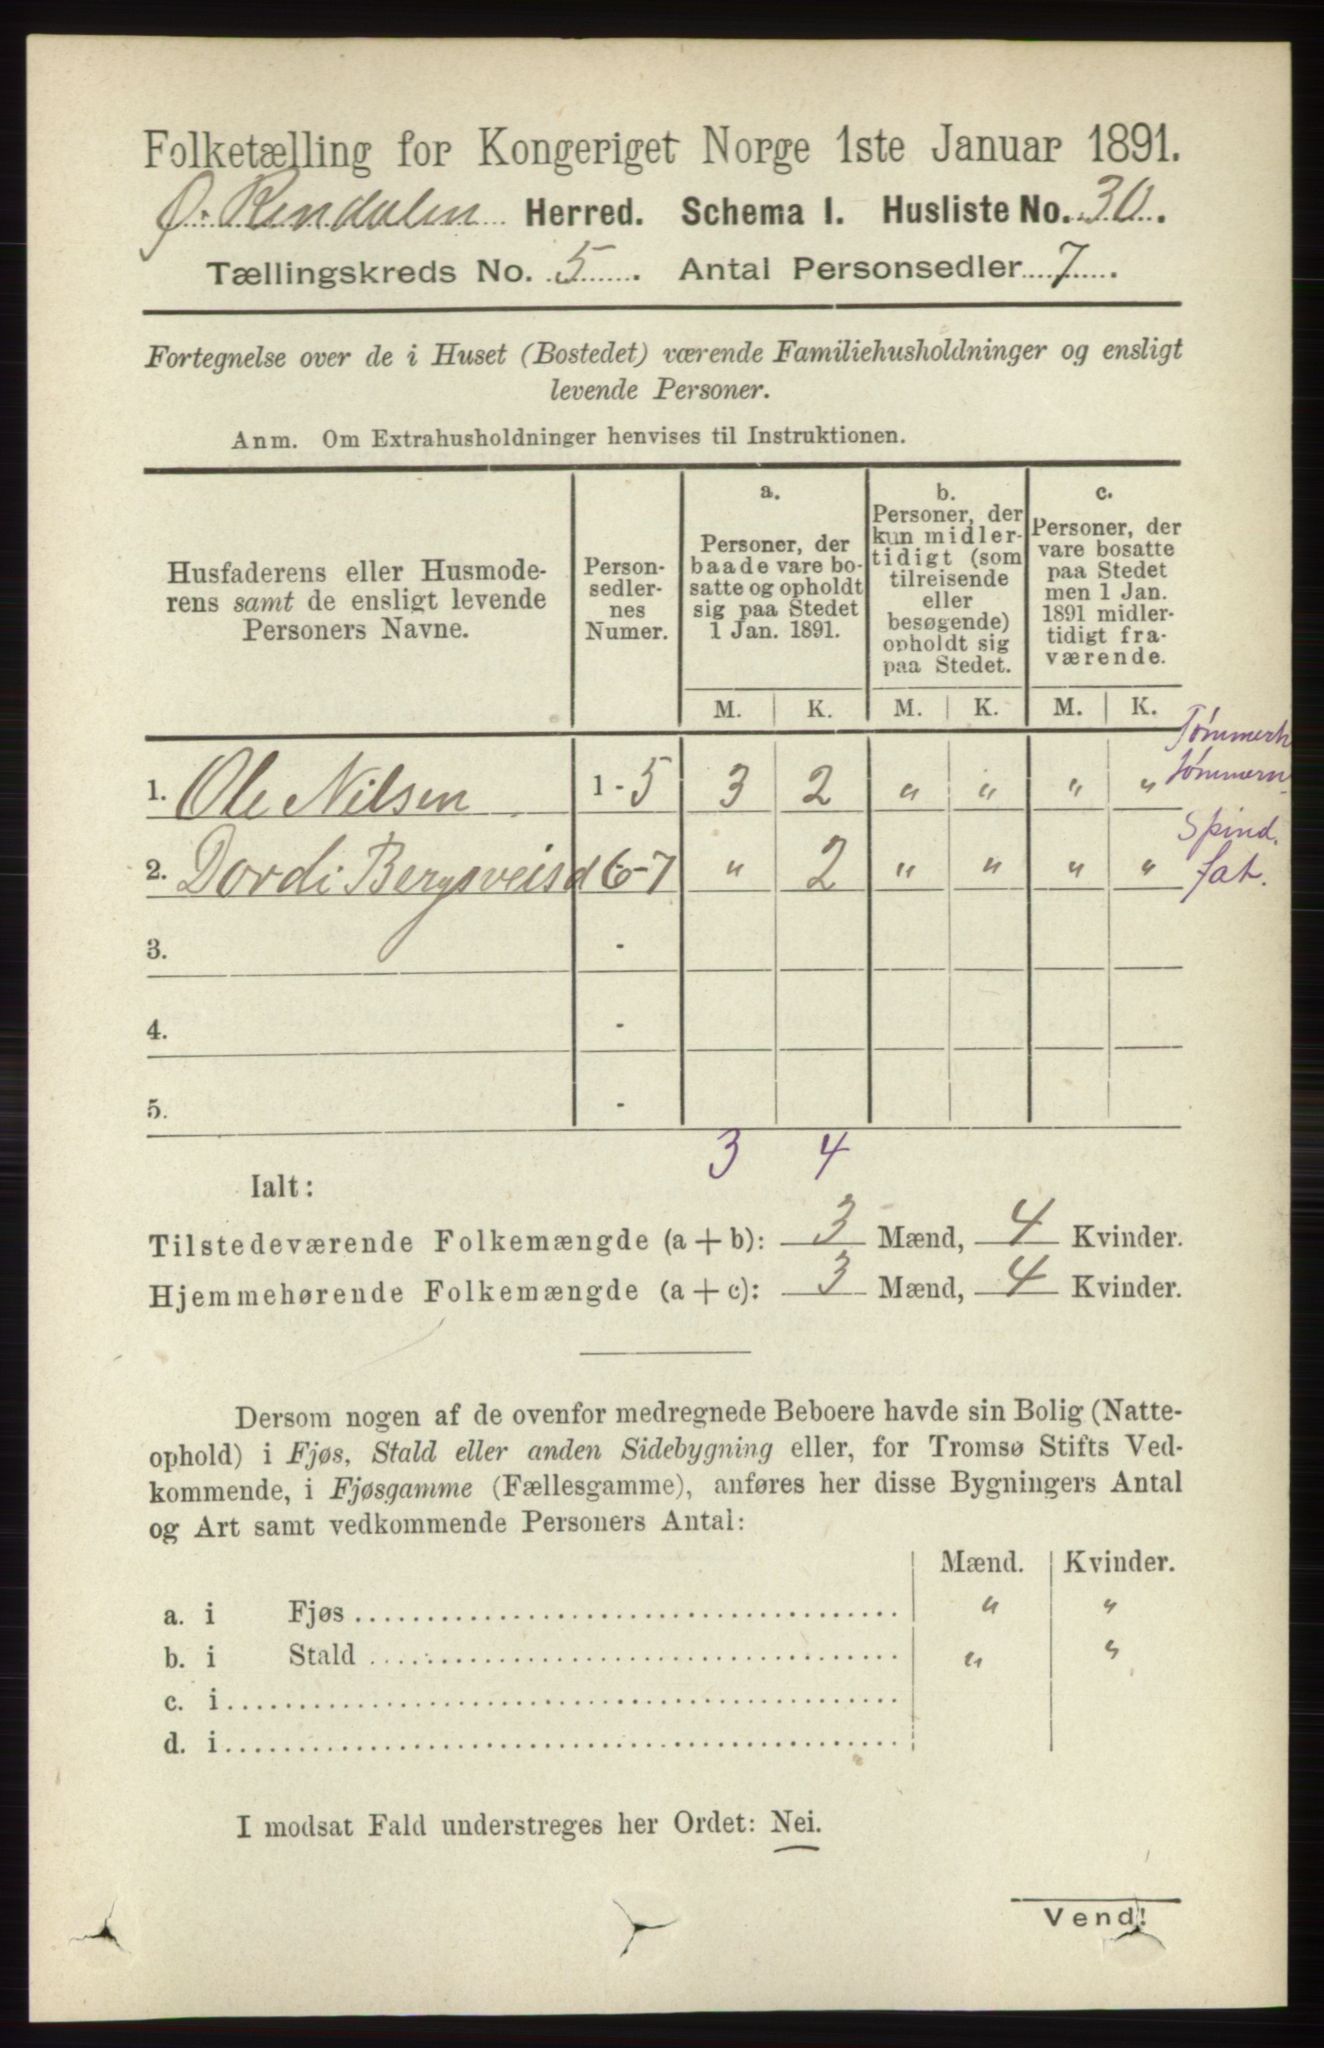 Folketælling for Kongeriget Norge 1ste Januar 1891.
Ø. Rendalen Herred. Schema I. Husliste No. 30.
Tællingskreds No. 5. Antal Personsedler 7.
Fortegnelse over de i Huset (Bostedet) værende Familiehusholdninger og ensligt
levende Personer.
Anm. Om Extrahusholdninger henvises til Instruktionen.
Husfaderens eller Husmode-
rens samt de ensligt levende
Personers Navne.
Person-
sedler-
nes
Numer.
a.
Personer, der
baade vare bo-
satte og opholdt
sig paa Stedet
1 Jan. 1891.
b.
Personer, der
kun midler-
tidigt (som
tilreisende
eller
besøgende)
opholdt sig
paa Stedet.
c.
Personer, der
vare bosatte
paa Stedet
men 1 Jan.
1891 midler-
tidigt fra-
værende.
M. K. M. K. M. K.
1. Ole Nilsen 1 - 5 3 2 „ „ „ „
Tømmerh
tømmern
2. Dordi Bergsveisd 6-7 „ 2 „ „ „ „
Spind.
fat.
3. -
4. -
5. -
3 4
Ialt:
Tilstedeværende Folkemængde (a + b): 3 Mænd, 4 Kvinder.
Hjemmehørende Folkemængde (a + c): 3 Mænd, 4 Kvinder.
Dersom nogen af de ovenfor medregnede Beboere havde sin Bolig (Natte-
ophold) i Fjøs, Stald eller anden Sidebygning eller, for Tromsø Stifts Ved-
kommende, i Fjøsgamme (Fællesgamme), anføres her disse Bygningers Antal
og Art samt vedkommende Personers Antal:
Mænd. Kvinder.
a. i Fjøs „ „
b. i Stald „ „
c. i
d. i
I modsat Fald understreges her Ordet: Nei.
Vend!